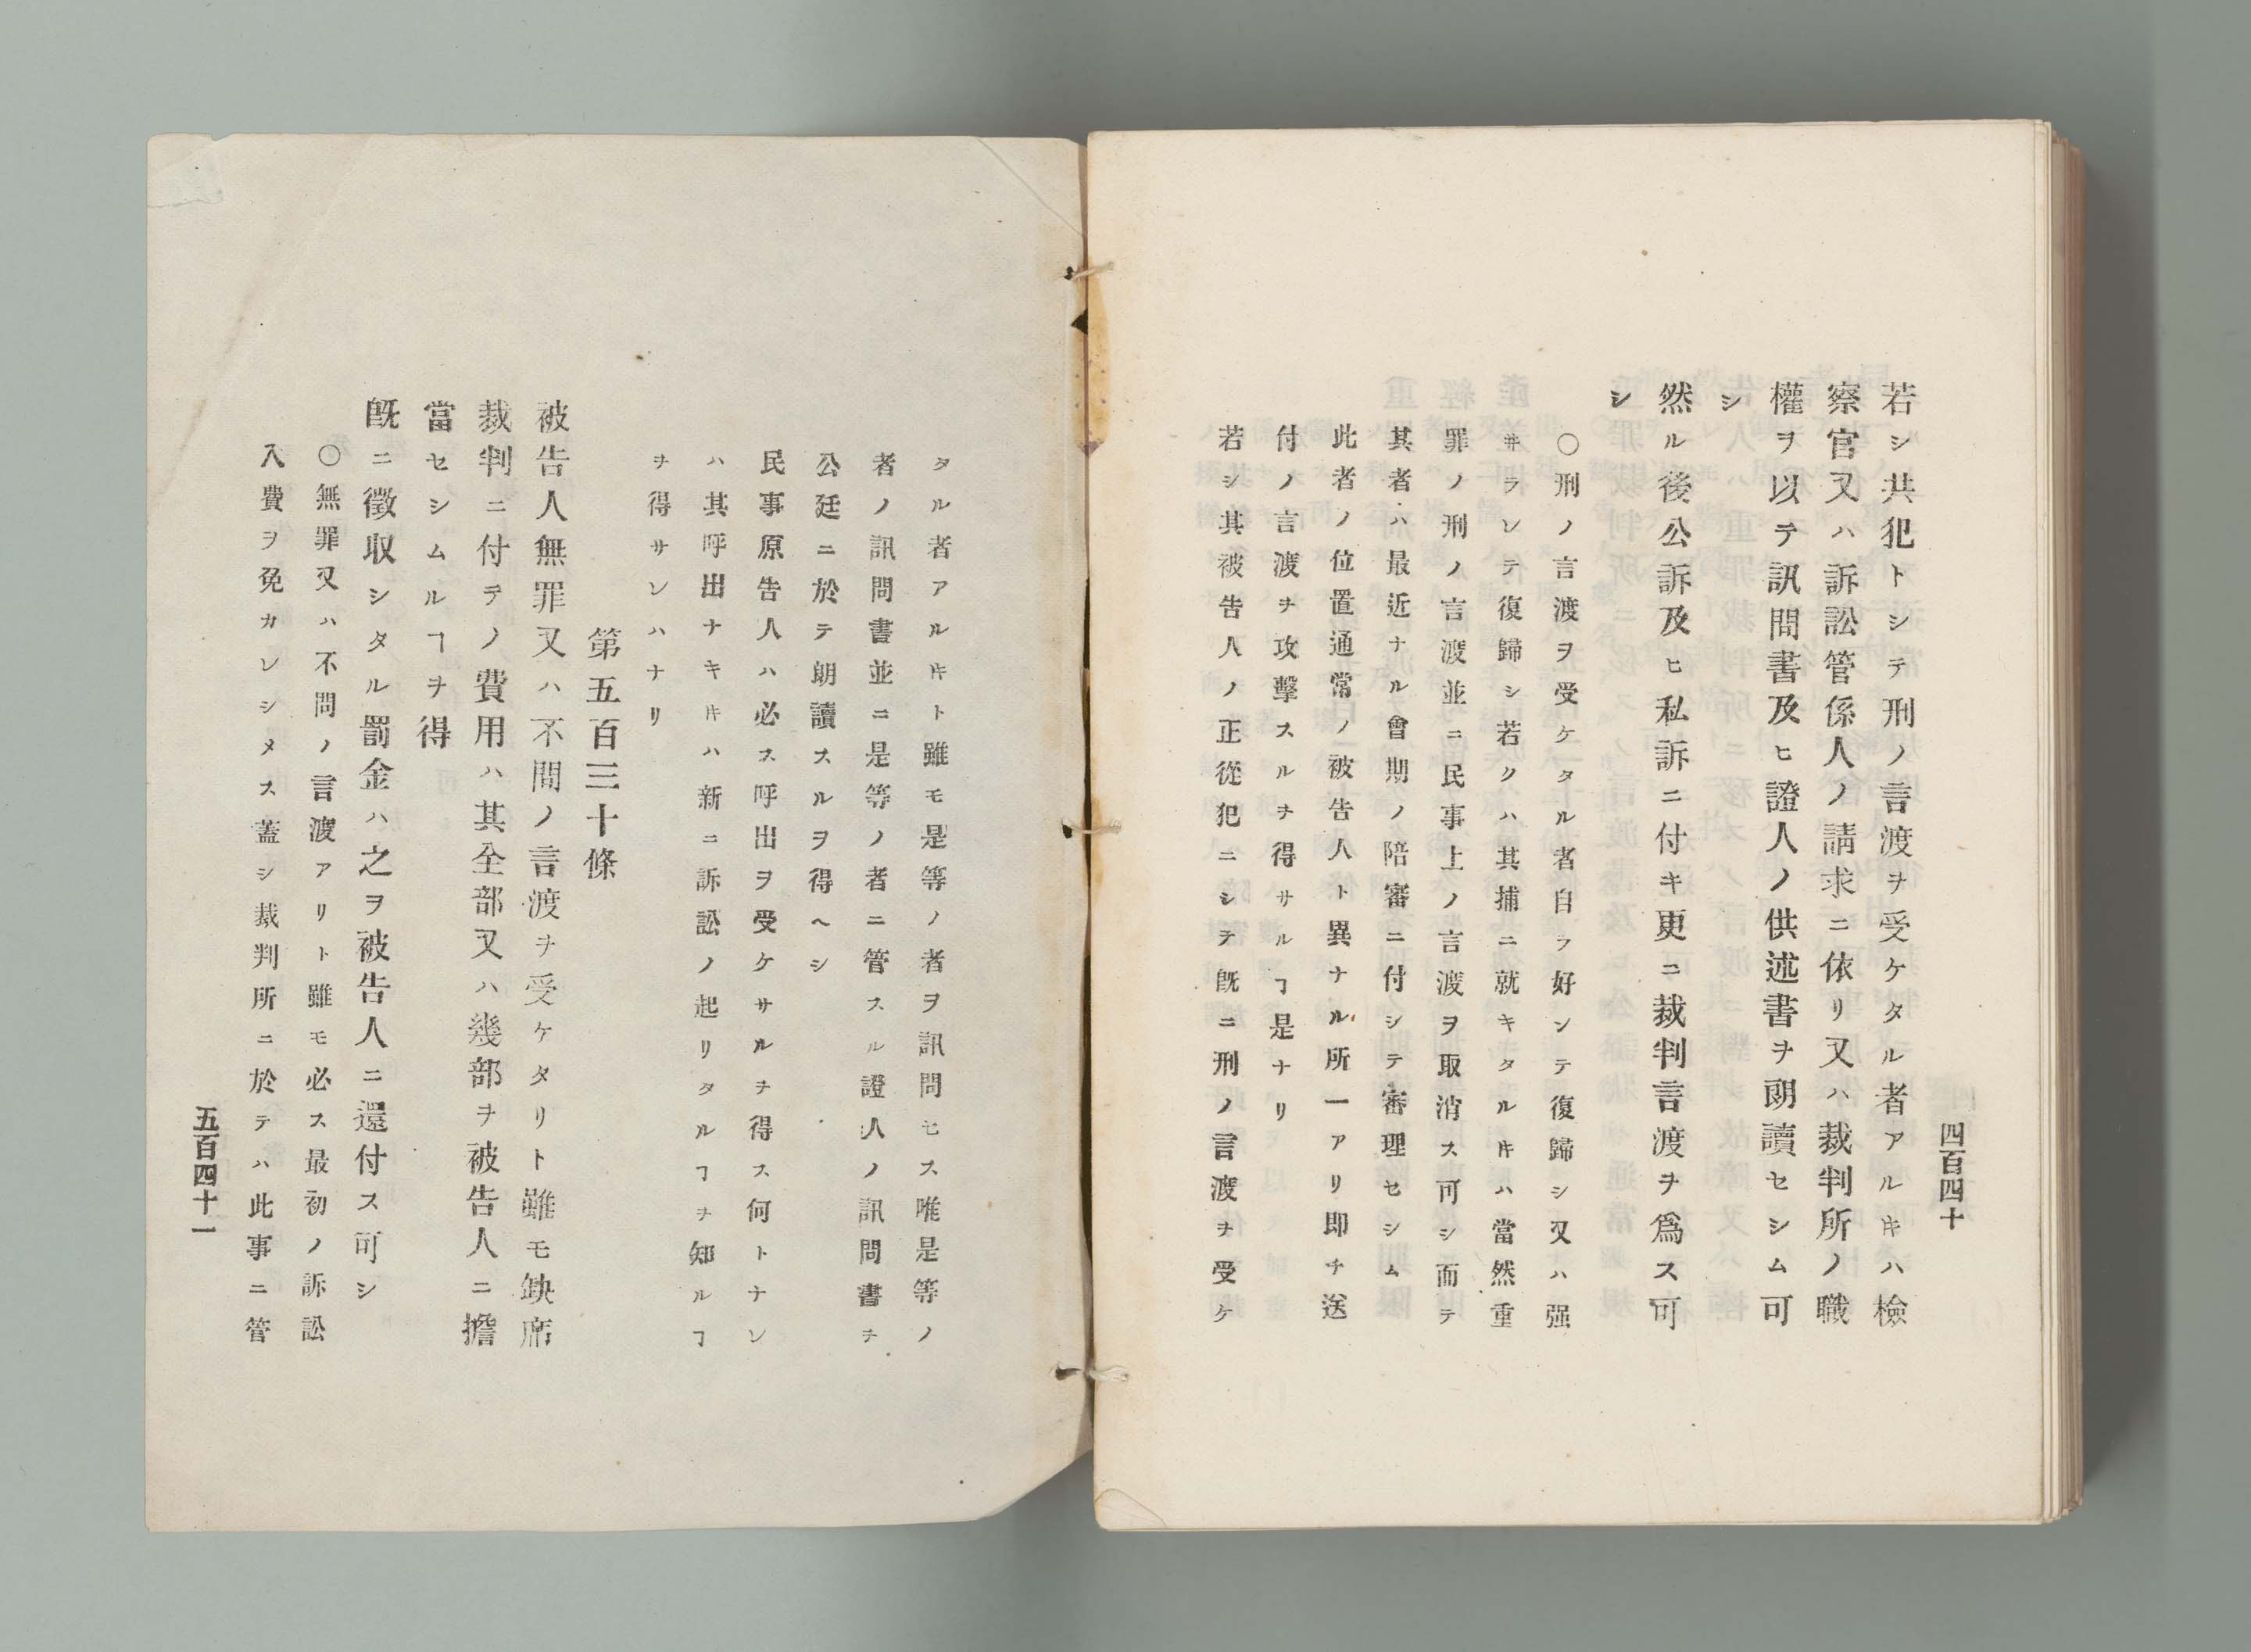 四百四十
若シ共犯トシテ刑ノ言渡ヲ受ケタル者アルキハ檢
察官又ハ訴訟管係人ノ請求ニ依リ又ハ裁判所ノ職
權ヲ以テ訊問書及ヒ證人ノ供述書ヲ朗讀セシム可
シ
然ル後公訴及ヒ私訴ニ付キ更ニ裁判言渡ヲ爲ス可
シ
〇刑ノ言渡ヲ受ケタル者自ラ好ンテ復歸シ又ハ强
ヰラレテ復歸シ若クハ其捕ニ就キタル𪜈ハ當然重
罪ノ刑ノ言渡並ニ民事上ノ言渡ヲ取消ス可シ而テ
其者ハ最近ナル會期ノ陪審ニ付シテ審理セシム
此者ノ位置通常ノ被告人ト異ナル所一アリ即チ送
付ノ言渡ヲ攻擊スルヲ得サルヿ是ナリ
若シ其被告人ノ正從犯ニシテ旣ニ刑ノ言渡ヲ受ケ
タル者アル𪜈ト雖モ是等ノ者ヲ訊問セス唯是等ノ
者ノ訊問書並ニ是等ノ者ニ管スル證人ノ訊問書ヲ
公廷ニ於テ朗讀スルヲ得ヘシ
民事原告人ハ必ス呼出ヲ受ケサルヲ得ス何トナレ
ハ其呼出ナキ𪜈ハ新ニ訴訟ノ起リタルヿヲ知ルヿ
ヲ得サレハナリ
第五百三十條
被告人無罪又ハ不問ノ言渡ヲ受ケタリト雖モ缺席
裁判ニ付テノ費用ハ其全部又ハ幾部ヲ被告人ニ擔
當セシムルヿヲ得
旣ニ徵取シタル罰金ハ之ヲ被告人ニ還付ス可シ
〇無罪又ハ不問ノ言渡アリト雖モ必ス最初ノ訴訟
入費ヲ免カレシメス蓋シ裁判所ニ於テハ此事ニ管
五百四十一